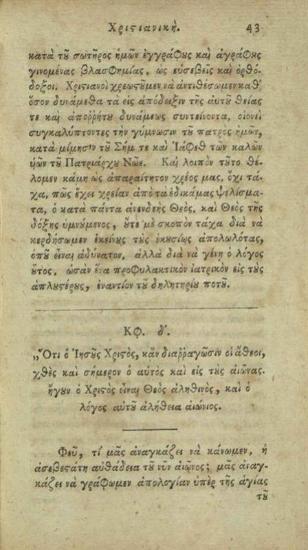 Χριστιανική. 43
κατὰ τȣ͂ σωτῆρος ἡμῶν ἐγγράφως καὶ ἀγράφως
γινομένας βλασφημίας, ὡς εὐσεβεῖς καὶ ὀρθό-
δοξοι Χριστιανοὶ χρεωςȣ͂μεν νὰ ἀντιθέσωμεν καθ᾽
ὅσον δυνάμεθα τὰ εἰς ἀπόδειξιν τῆς αὐτȣ͂ θείας
τε καὶ ἀποῤῥήτȣ δυνάμεως συντείνοντα, οἱονεὶ
συγκαλύπτοντες τὴν γύμνωσιν τȣ͂ πατρὸς ἡμῶν,
κατὰ μίμησιν τȣ͂ Σὴμ τε καὶ Ἰάφεθ τῶν καλῶν
ὑιῶν τȣ͂ Πατριάρχȣ Νῶε. Καὶ λοιπὸν τȣ͂το θέ-
λομεν κάμη ὡς ἀπαραίτητον χρέος μας, ὄχι τά-
χα, πῶς ἔχει χρείαν ἀπὸ τὰ ἐδικάμας ψιλίσμα-
τα, ὁ κατὰ πάντα ἀνενδεὴς Θεὸς, καὶ Θεὸς τῆς
δόξης ὑμνȣ́μενος, ȣ̓́τε μὲ σκοπὸν τάχα διὰ νὰ
κερδήσωμεν ἐκείνȣς τȣ̀ς ἑκȣσίως ἀπολωλότας,
ὁπȣ͂ εἶναι ἀδύνατον. ἀλλὰ διὰ νὰ γένῃ ὁ λόγος
ȣ̓͂τος, ὡσὰν ἕνα προφυλακτικὸν ἰατρικὸν εἰς τȣ̀ς
ἁπλȣςέρȣς, ἐναντίον τȣ͂ δηλητηρίȣ ποτȣ͂.
Κφ. δ΄.
„Ὅτι ὁ Ἰησȣ͂ς Χριςὸς, κᾂν διαῤῥαγῶσιν οἱ ἄθεοι,
χθὲς καὶ σήμερον ὁ αὐτὸς καὶ εἰς τȣ̀ς αἰῶνας.
ἤγȣν ὁ Χριςὸς εἶναι Θεὸς ἀληθινὸς, καὶ ὁ
λόγος αὐτȣ͂ ἀλήθεια αἰώνιος.
Φεῦ, τί μᾶς ἀναγκάζει νὰ κάνωμεν, ἡ
ἀσεβεςάτη αὐθάδεια τȣ͂ νῦν αἰῶνος; μᾶς ἀναγ-
κάζει νὰ γράφωμεν ἀπολογίαν ὑπὲρ τῆς ἁγίας
τȣ͂